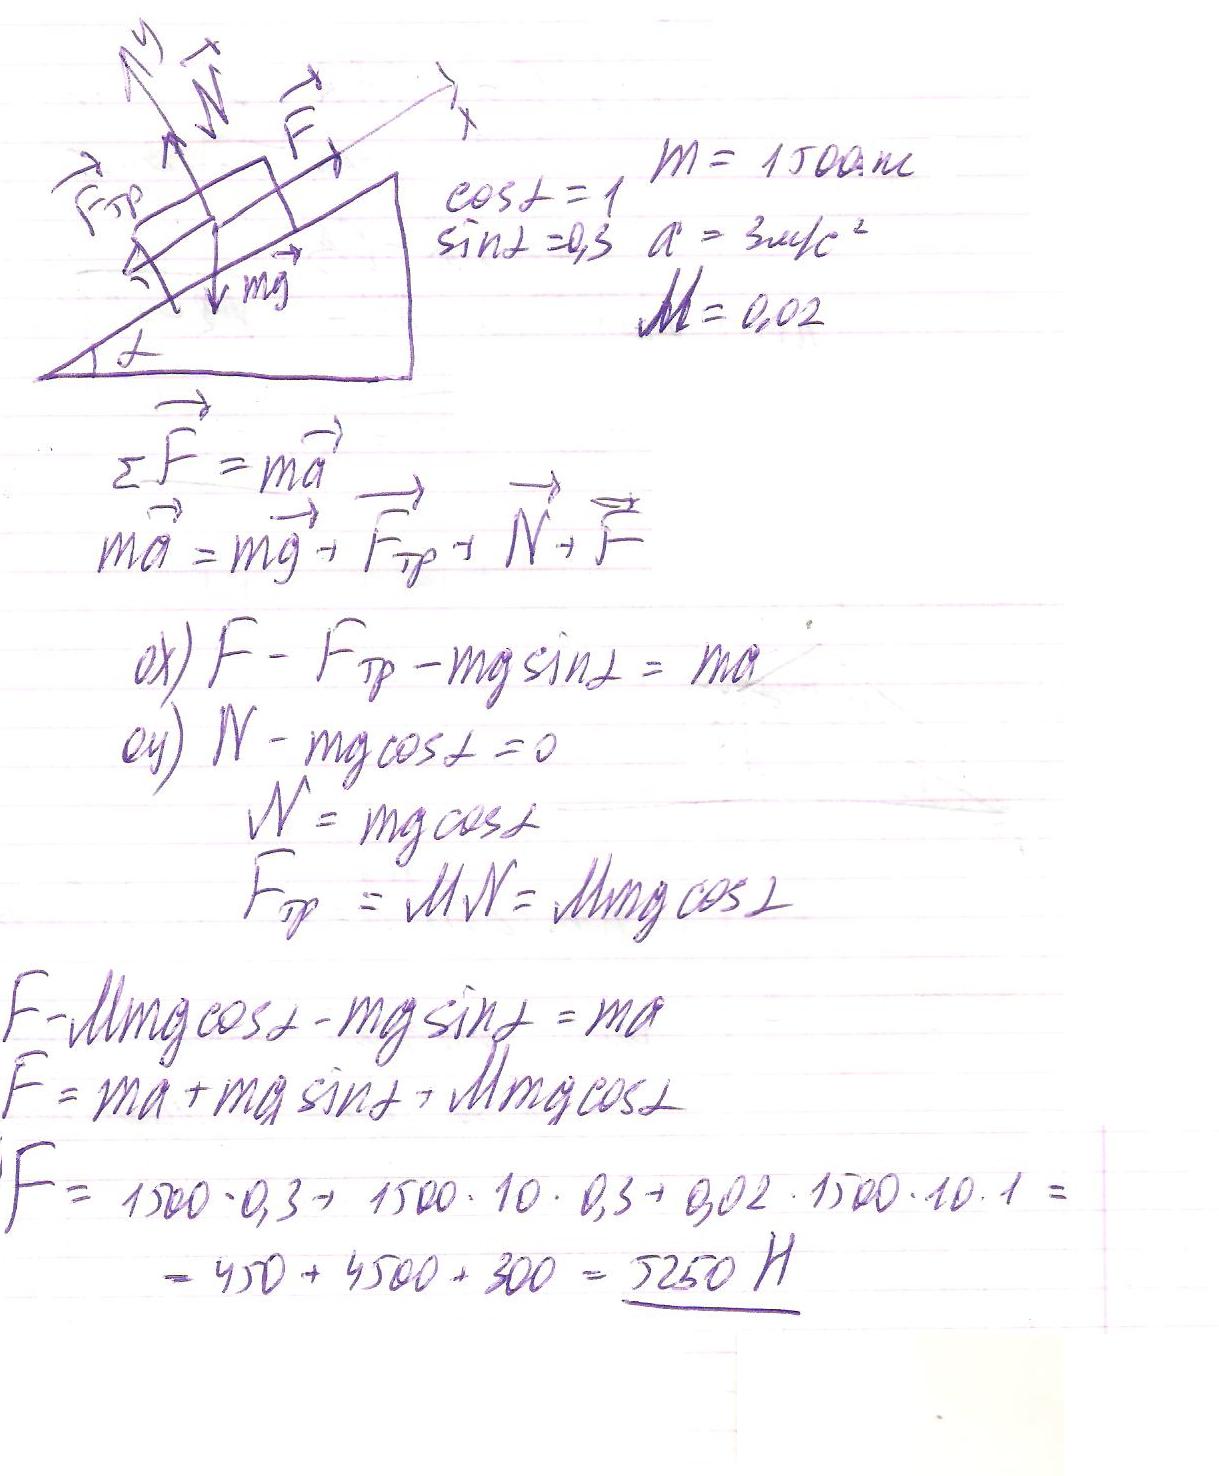 y
N
F
x
Fтр
mg
α
cosα = 1
sinα = 0,3
m = 1500
a = 3м/с²
M = 0,02
ΣF = ma
ma = mg + Fтр + N + F
ox) F - Fтр - mg sinα = ma
oy) N - mg cosα = 0
N = mg cosα
Fтр = MN = Mmg cosα
F - Mmg cosα - mg sinα = ma
F = ma + mg sinα + Mmg cosα
F = 1500 · 0,3 + 1500 · 10 · 0,3 + 0,02 · 1500 · 10 · 1 =
= 450 + 4500 + 300 = 5250 Н